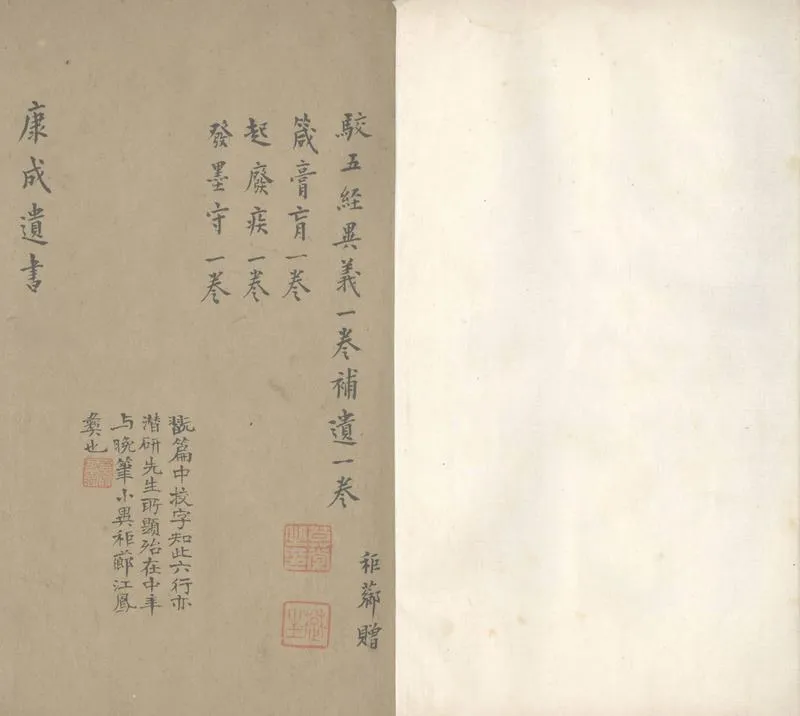 駮五経異義一卷補遺一卷
箴膏肓一卷
起廢疾一卷
發墨守一卷
康成遺書
秬薌贈
翫篇中挍字知此六行亦
潛研先生所題殆在中年
与晚筆小異秬薌江鳳
彝也